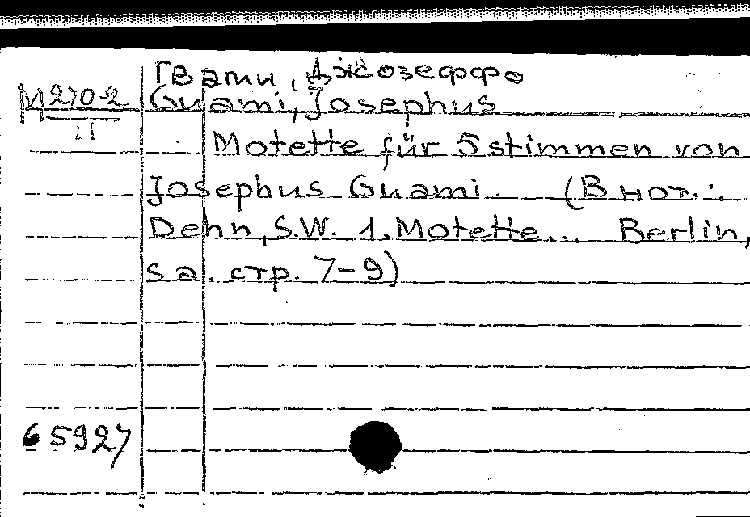 Гвами, Джозеффо
М 270-2 Guami, Josephus
II
Motette für 5 stimmen von
Josephus Guami. (В нот.:
Dehn, S.W. 1. Motette... Berlin,
s a. стр. 7-9)
65927